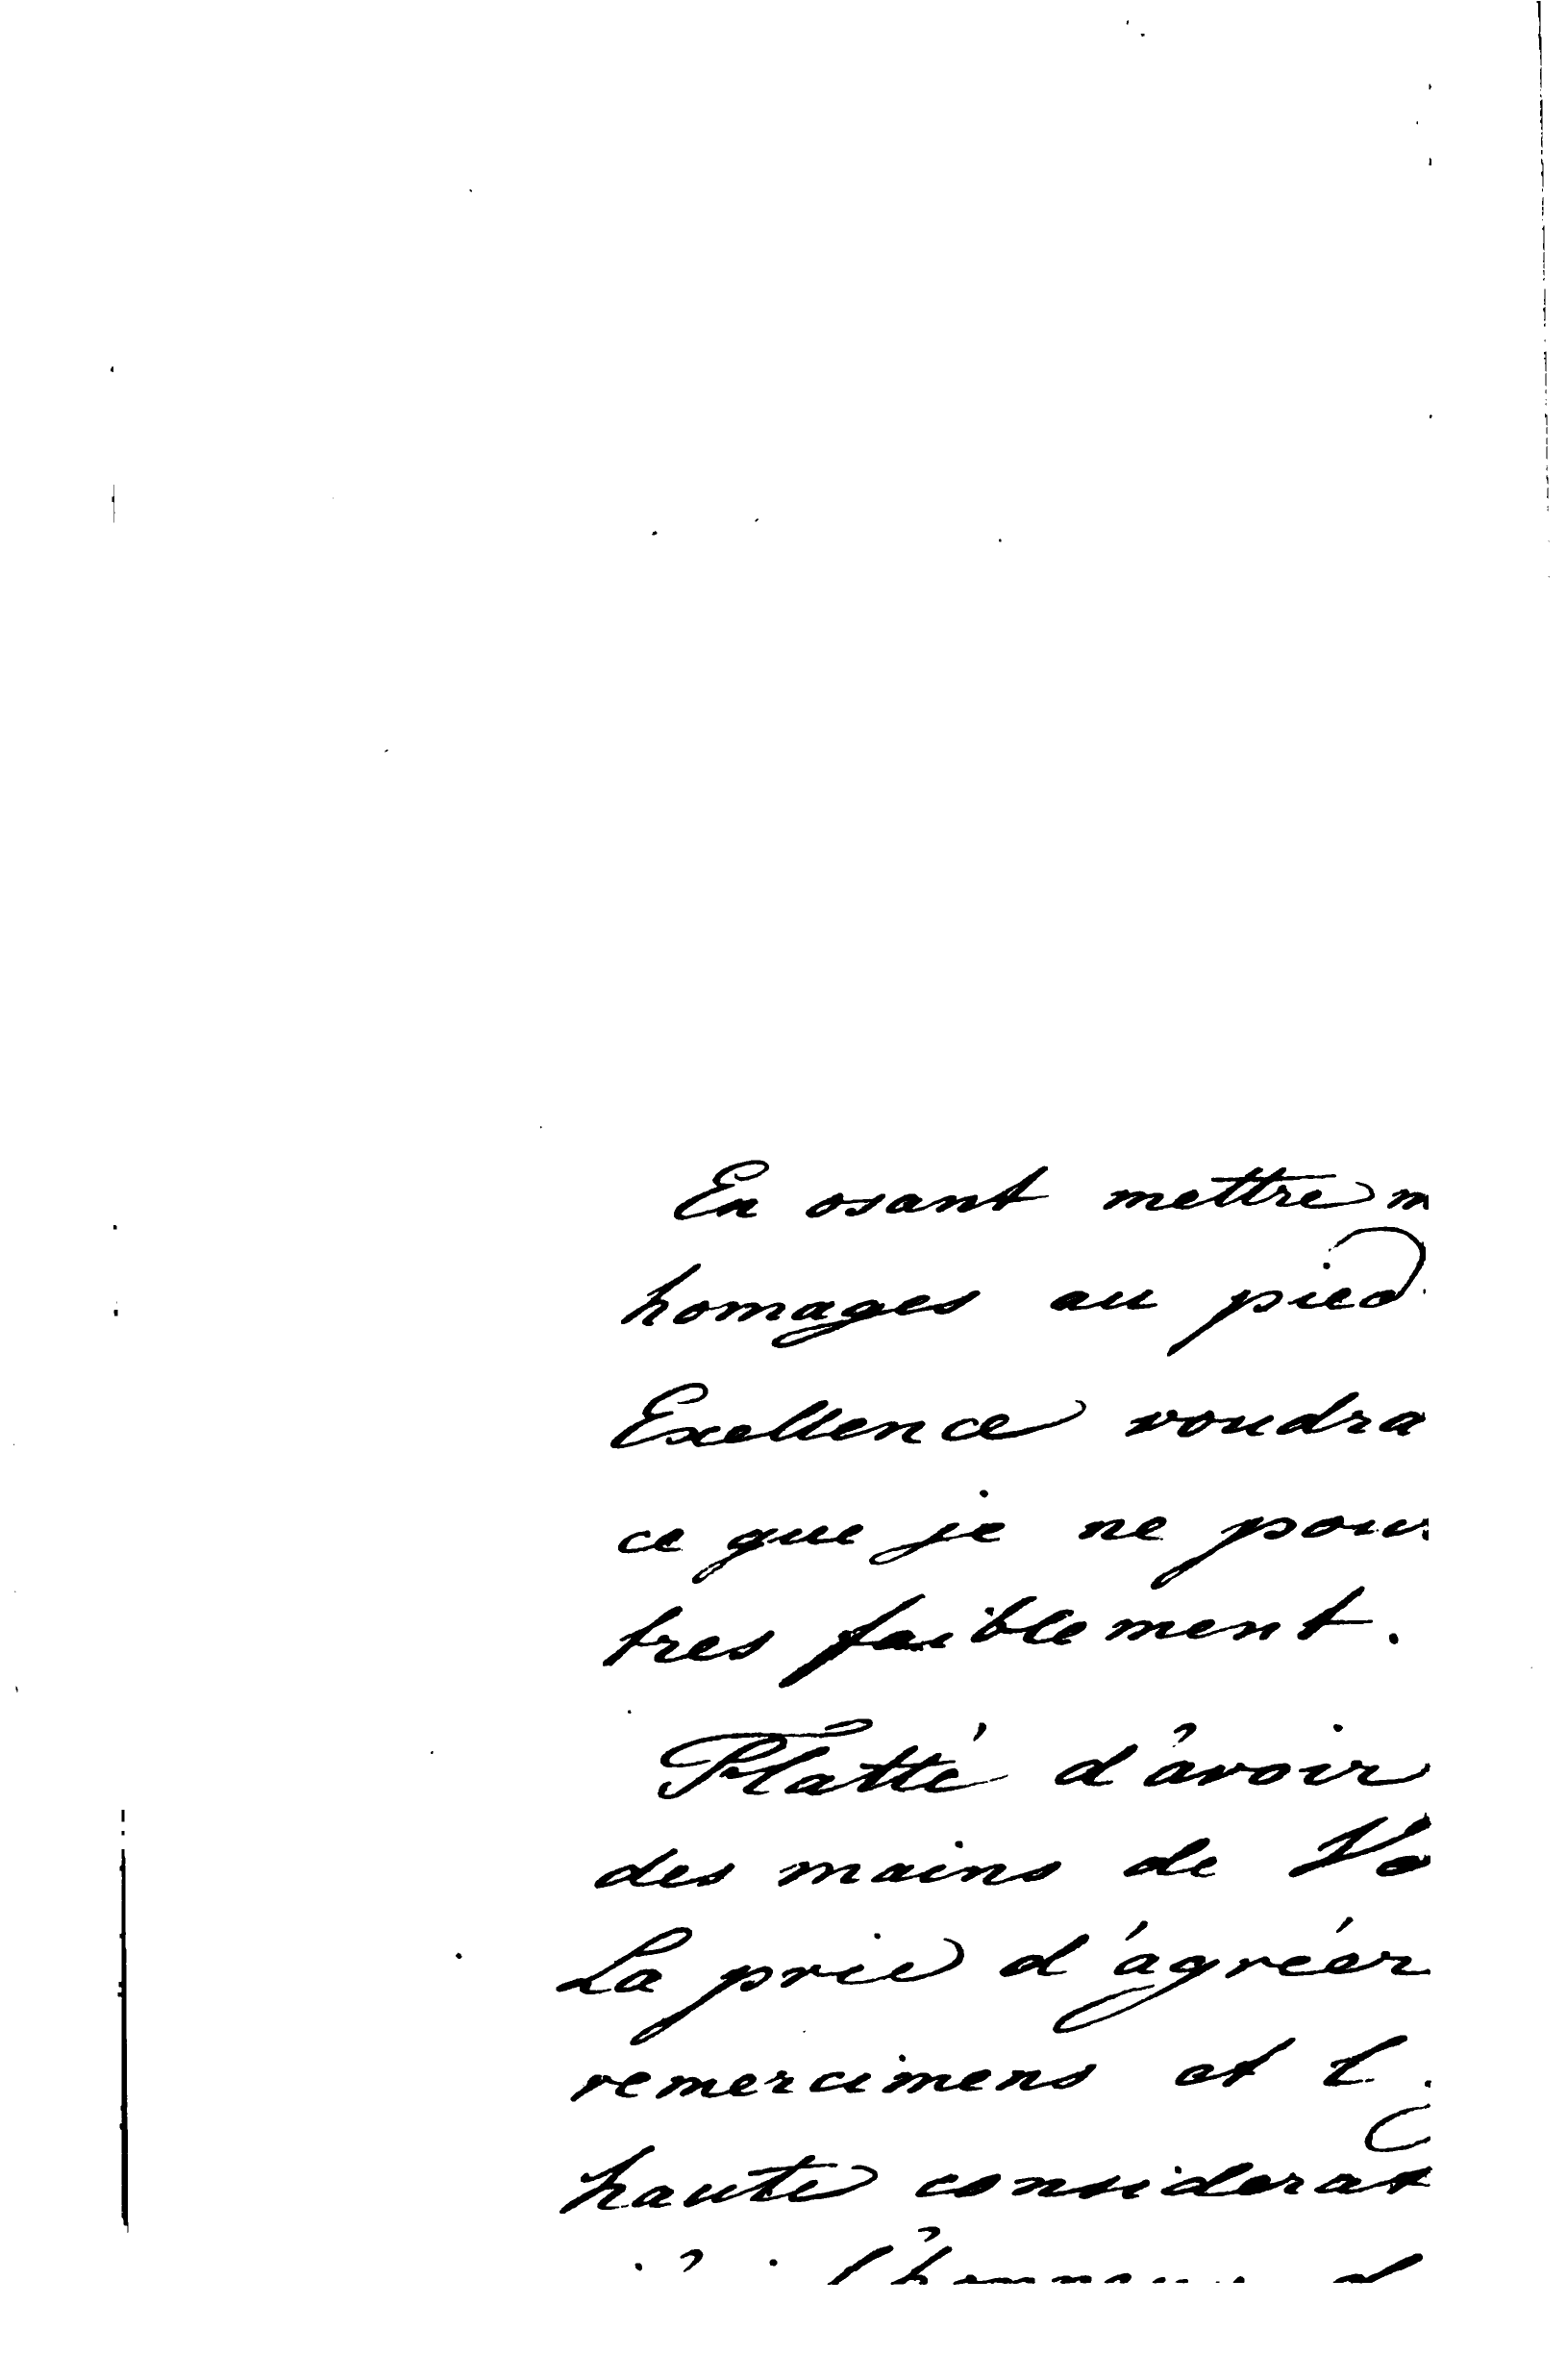 En osant mettre m
homages au pied
Exellence voudra
ce que je ne pou
tres faiblement.
Flatté d'avoir
des mains de Vo
La prie d'agréer
remercimens et l
haute considerat
l'honneur d